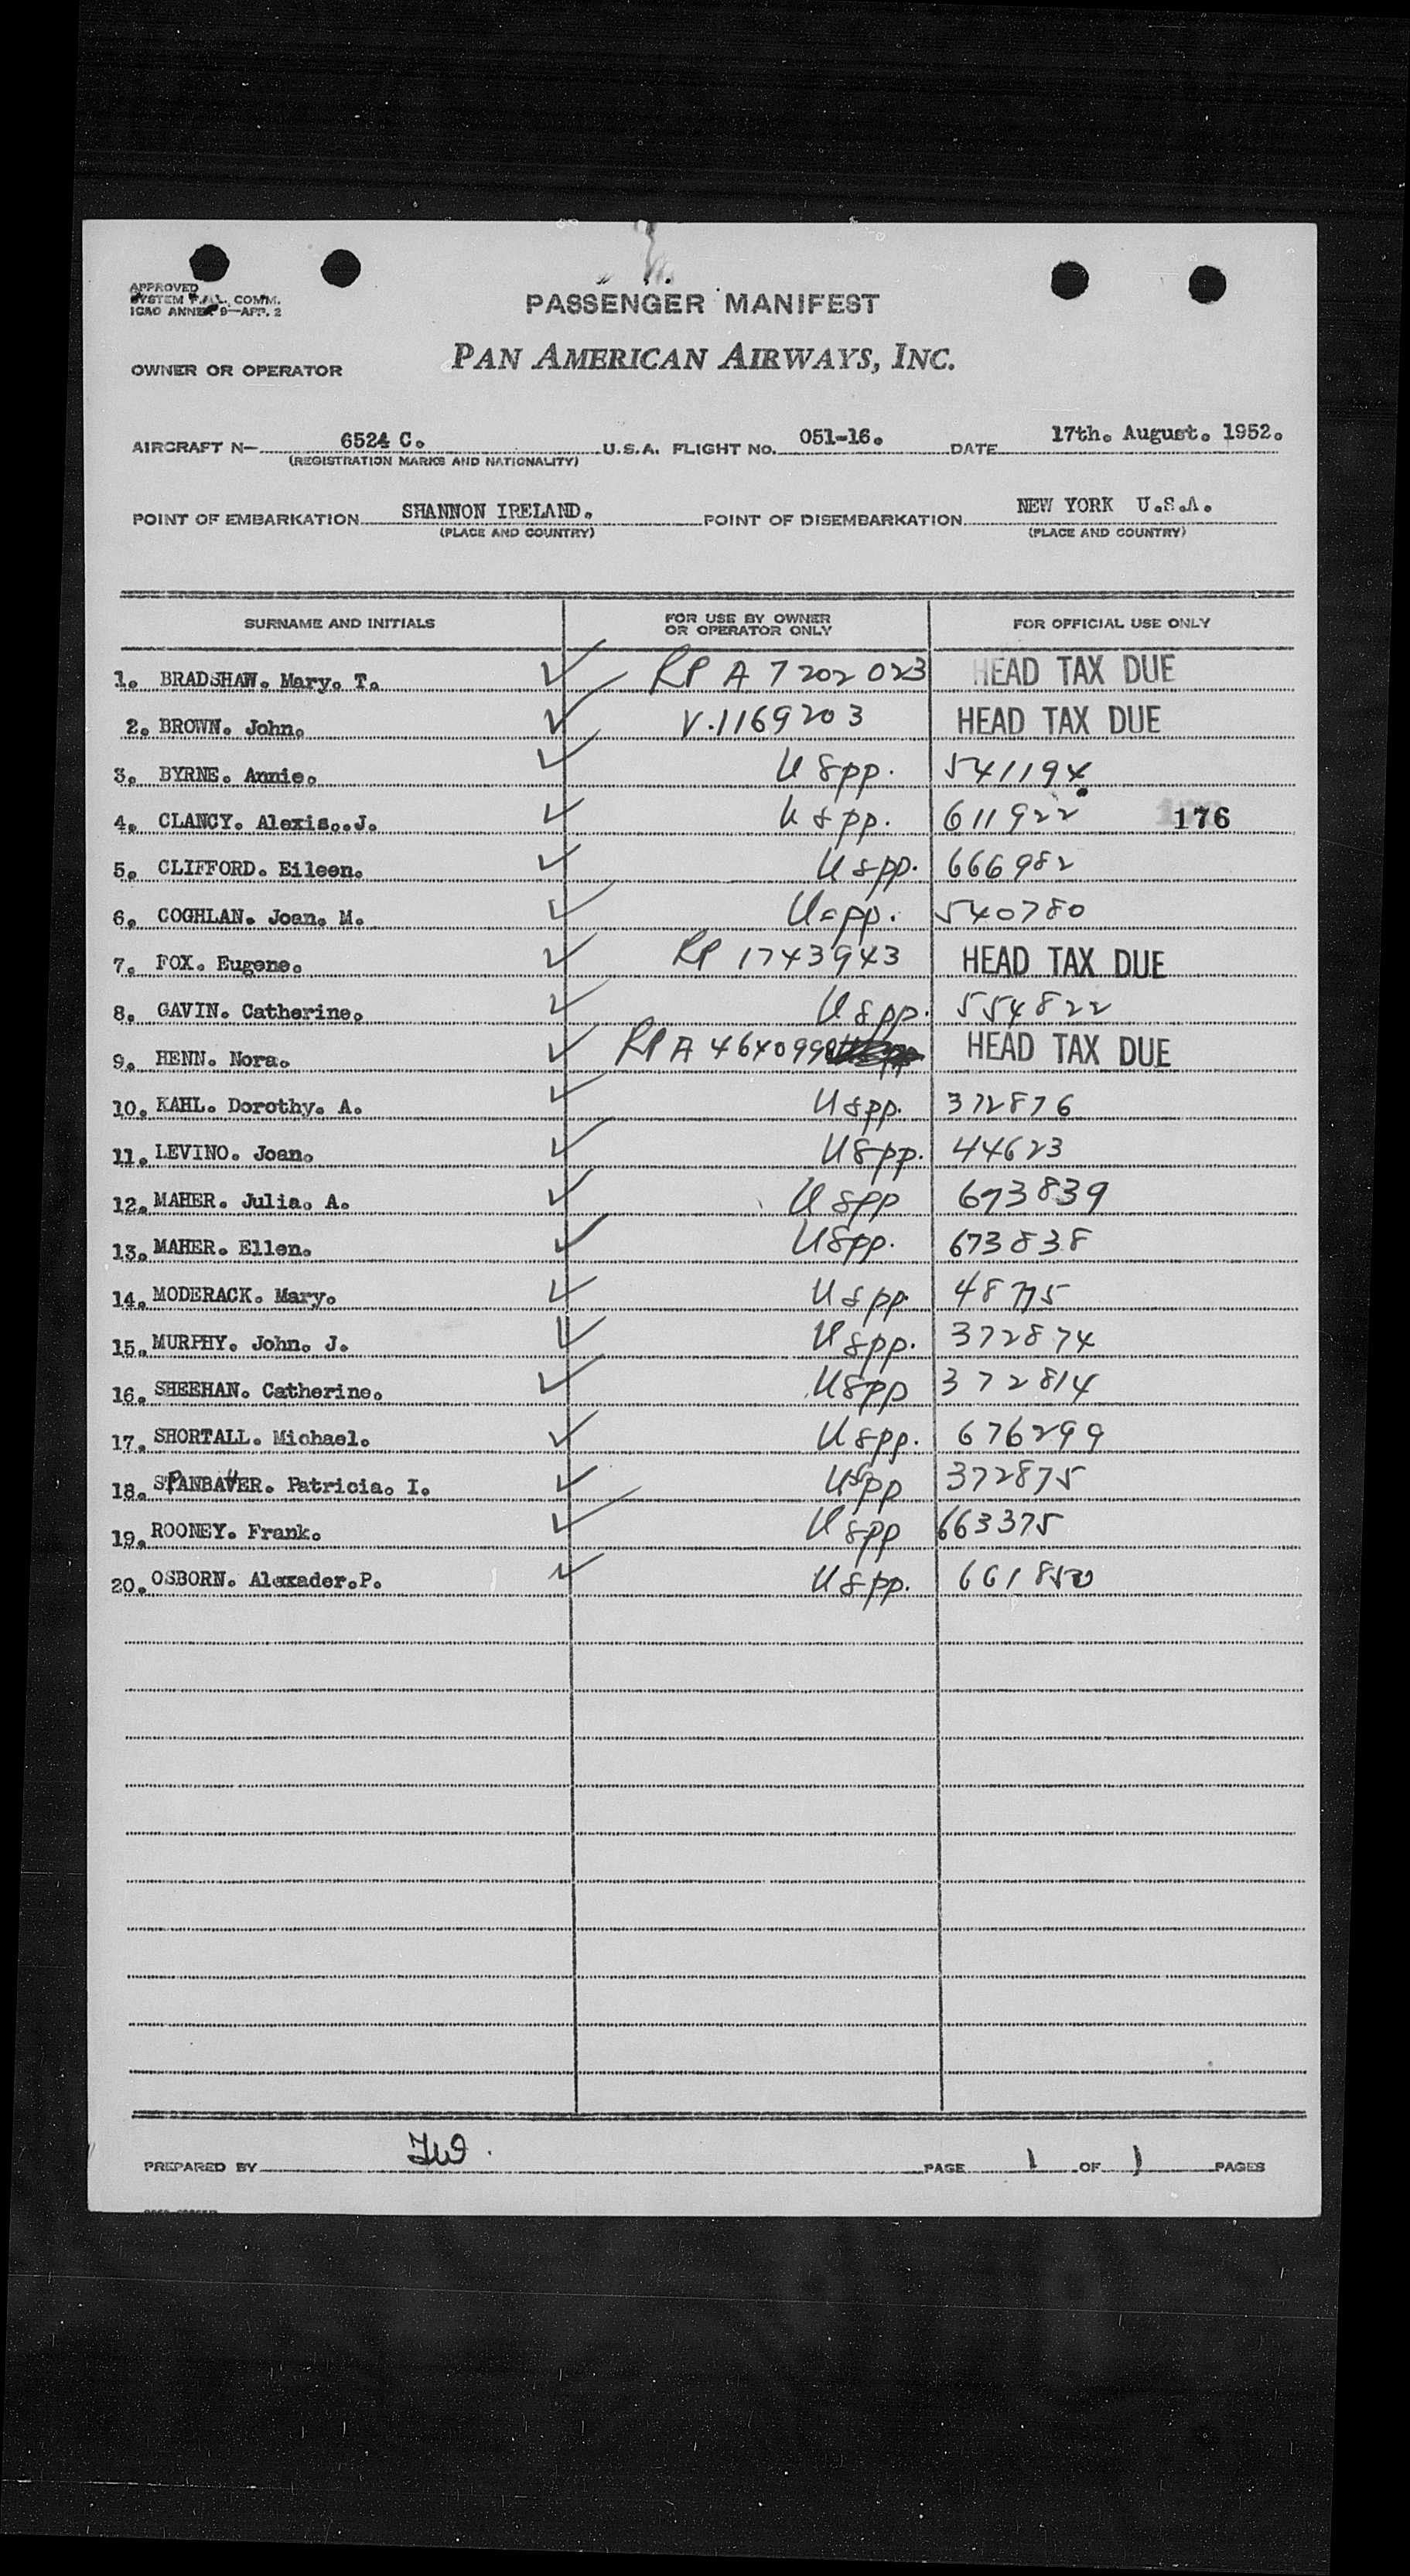 APPROVED
SYSTEM F.A.L. COMM.
ICAO ANNEX 9—APP. 2
PASSENGER MANIFEST
OWNER OR OPERATOR PAN AMERICAN AIRWAYS, INC.
AIRCRAFT N— 6524 C. U.S.A. FLIGHT NO. 051-16. DATE 17th. August. 1952.
(REGISTRATION MARKS AND NATIONALITY)
POINT OF EMBARKATION SHANNON IRELAND. POINT OF DISEMBARKATION NEW YORK U.S.A.
(PLACE AND COUNTRY) (PLACE AND COUNTRY)
SURNAME AND INITIALS FOR USE BY OWNER OR OPERATOR ONLY FOR OFFICIAL USE ONLY
1. BRADSHAW. Mary. T. ✓ RP A 7202023 HEAD TAX DUE
2. BROWN. John. ✓ V.1169203 HEAD TAX DUE
3. BYRNE. Annie. ✓ USpp. 541194
4. CLANCY. Alexis..J. ✓ USpp. 611922 176
5. CLIFFORD. Eileen. ✓ USpp. 666982
6. COGHLAN. Joan. M. ✓ USpp. 540780
7. FOX. Eugene. ✓ RP 1743943 HEAD TAX DUE
8. GAVIN. Catherine. ✓ USpp. 554822
9. HENN. Nora. ✓ RP A 4640998 HEAD TAX DUE
10. KAHL. Dorothy. A. ✓ USpp. 372876
11. LEVINO. Joan. ✓ USpp. 44623
12. MAHER. Julia. A. ✓ USpp 673839
13. MAHER. Ellen. ✓ USpp. 673838
14. MODERACK. Mary. ✓ USpp. 48775
15. MURPHY. John. J. ✓ USpp. 372874
16. SHEEHAN. Catherine. ✓ USpp 372814
17. SHORTALL. Michael. ✓ USpp. 676299
18. SPANBAUER. Patricia. I. ✓ USpp 372875
19. ROONEY. Frank. ✓ USpp 663375
20. OSBORN. Alexader.P. ✓ USpp. 661850
PREPARED BY PAGE 1 OF 1 PAGES